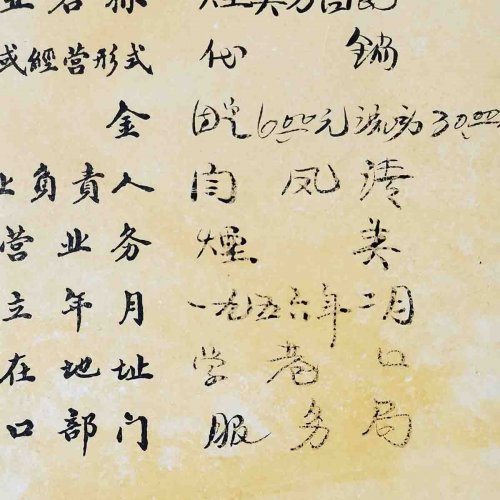 业名称 煙类
或經营形式 代 銷
金 固定600元 流动30.00
负責人 闫凤清
营业务 煙类
立年月 一九五六年二月
在地址 学巷口
口部门 服务局